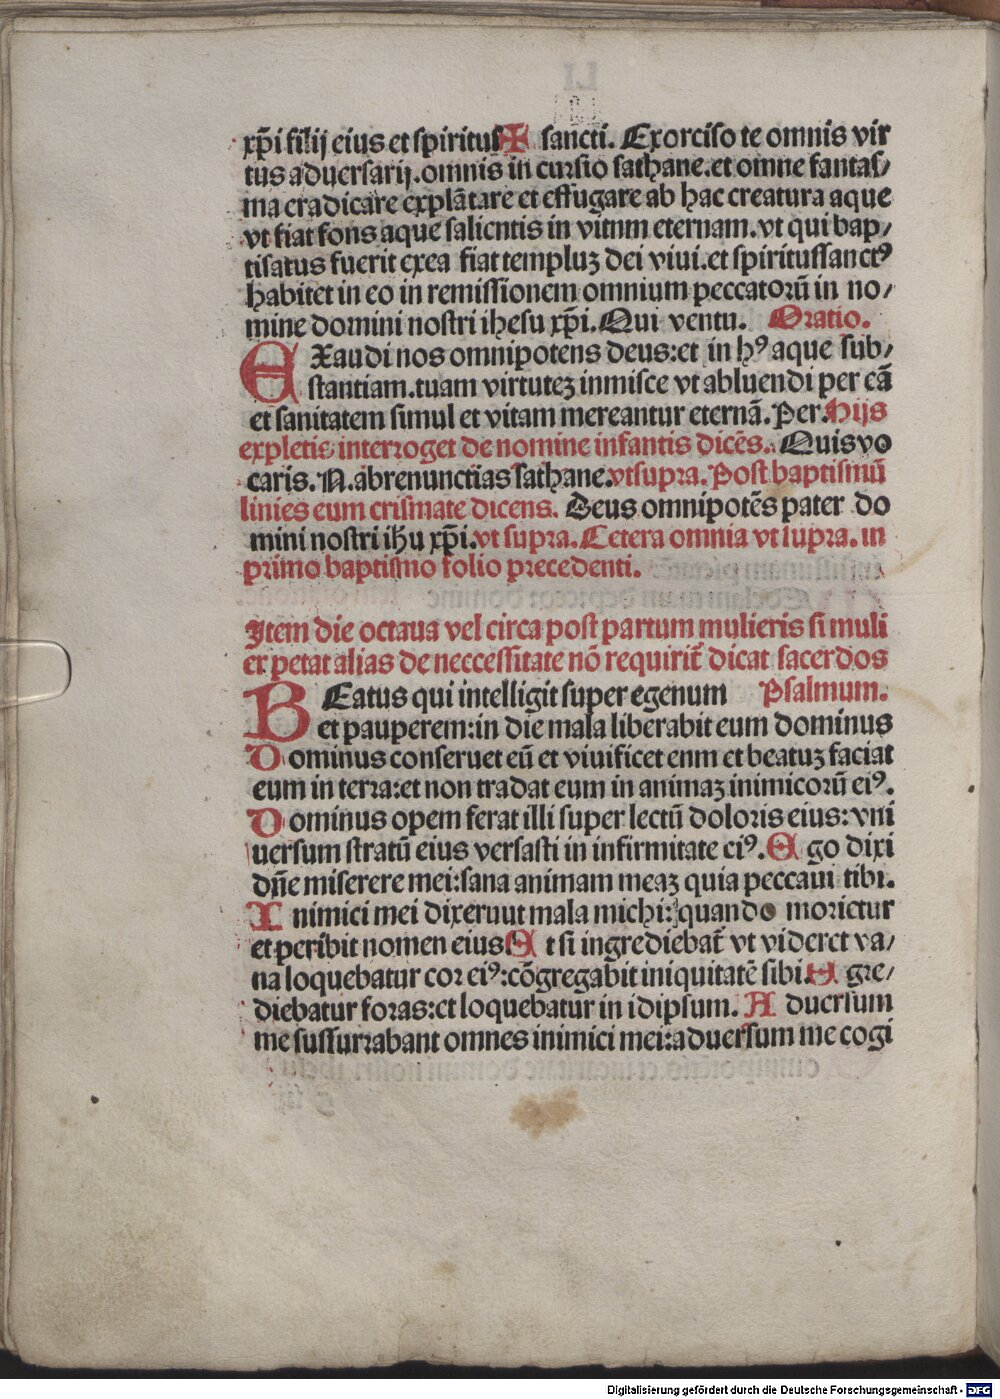 xp̄i filij eius et spiritus ✠ sancti. Exorciso te omnis vir
tus aduersarij.omnis in cursio sathane.et omne fantas⸗
ma eradicare explātare et effugare ab hac creatura aque
vt fiat fons aque salientis in vitnm eternam.vt qui bap⸗
tisatus fuerit exea fiat templuꝫ dei viui.et spiritussanctꝰ
habitet in eo in remissionem omnium peccatorū in no⸗
mine domini nostri ihesu xp̄i. Qui ventu. Oratio.
EXaudi nos omnipotens deus:et in hꝰ aque sub⸗
stantiam.tuam virtuteꝫ inmisce vt abluendi per eā
et sanitatem simul et vitam mereantur eternā. Per. Hijs
expletis interroget de nomine infantis dicēs. Quis vo
caris. N. abrenunctias sathane.vtsupra. Post baptismū
linies eum crismate dicens. Deus omnipotēs pater do
mini nostri ihu xp̄i.vt supra. Cetera omnia vt supra. in
primo baptismo folio precedenti.
Item die octaua vel circa post partum mulieris si muli
er petat alias de neccessitate nō requirit̄ dicat sacerdos
BEatus qui intelligit super egenum Psalmum.
et pauperem:in die mala liberabit eum dominus
Dominus conseruet eū et viuificet enm et beatuꝫ faciat
eum in terra:et non tradat eum in animaꝫ inimicorū eiꝰ.
Dominus opem ferat illi super lectū doloris eius:vni
uersum stratū eius versasti in infirmitate eiꝰ. Ego dixi
dn̄e miserere mei:sana animam meaꝫ quia peccaui tibi.
Inimici mei dixeruut mala michi:quando morietur
et peribit nomen eius Et si ingrediebat̄ vt videret va⸗
na loquebatur cor eiꝰ:cōgregabit iniquitatē sibi. Egre⸗
diebatur foras:et loquebatur in idipsum. Aduersum
me sussurrabant omnes inimici mei:aduersum me cogi
Digitalisierung gefördert durch die Deutsche Forschungsgemeinschaft - DFG